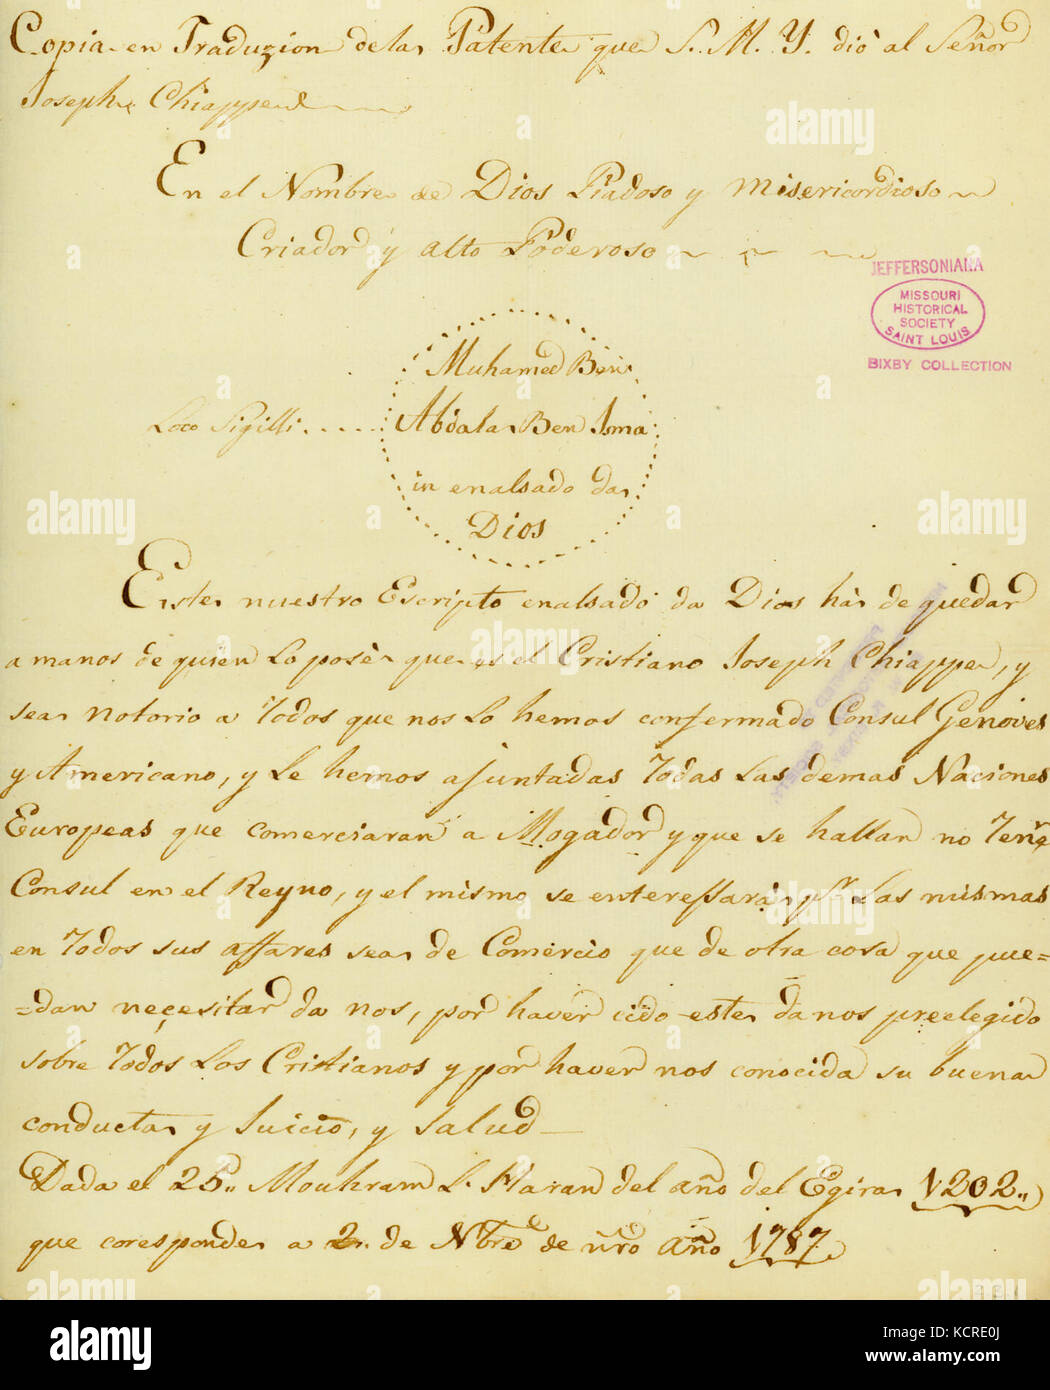 Copia en Traduzion de la Patente que S. M. Y. diò al Señor
Joseph Chiappe
En el Nombre de Dios Piadoso y Misericordioso
Criador y alto Poderoso
JEFFERSONIANA
MISSOURI
HISTORICAL
SOCIETY
SAINT LOUIS
BIXBY COLLECTION
Muhamed Ben
Loco Sigilli..... Abdala Ben Isma
in enalsado da
Dios
Este nuestro Escripto enalsado da Dios hà de quedar
a manos de quien lo posèe que es el Cristiano Joseph Chiappe, y
sea notorio a todos que nos lo hemos confermado Consul Genoves
y Americano, y le hemos ajuntadas todas las demas Naciones
Europeas que comerciaran a Mogador y que se hallan no
Consul en el Reyno, y el mismo se enteressarà pr. las mismas
en todos sus affares sea de Comercio que de otra cosa que pue=
=dan neçesitar da nos, por haver cido este da nos preelegido
sobre todos los Cristianos y por haver nos conocida su buena
conducta y Juicio, y salud
Dada el 25,, Mouhram L. Haran del año del Egira 1202,,
que coresponde a 2. de Nbre de ñro año 1787
alamy
KCRE0J
www.alamy.com